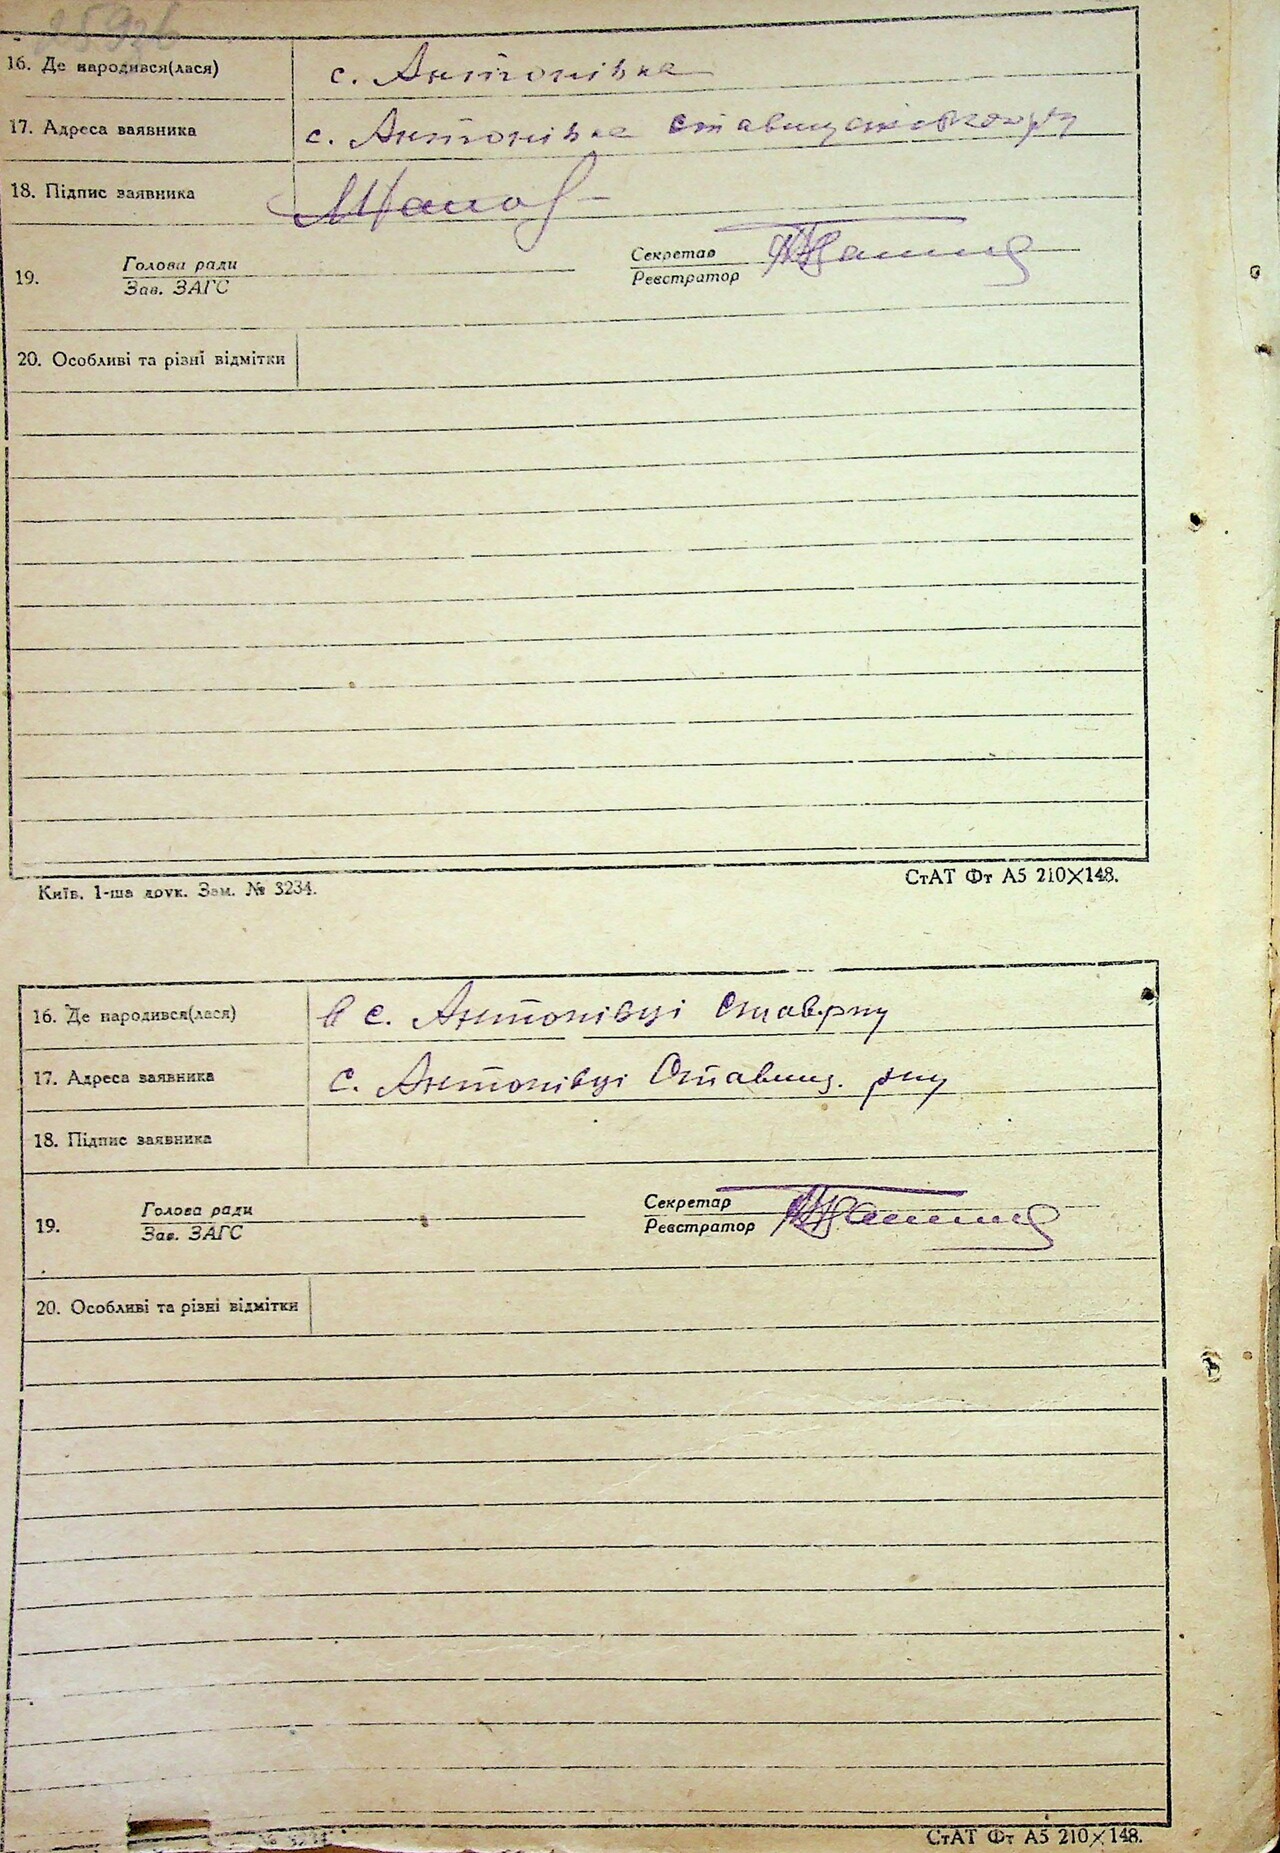 16. Де народився(лася) с. Антонівка
17. Адреса заявника с. Антонівка
18. Підпис заявника
Голова ради Секретар
19.
Зав. ЗАГС Реєстратор
20. Особливі та різні відмітки
Київ. 1-ша друк. Зам. № 3234. СтАТ Фт А5 210×148.
16. Де народився(лася) в с. Антонівці Ставрну
17. Адреса заявника с. Антонівці Ставищ. рну
18. Підпис заявника
Голова ради Секретар
19.
Зав. ЗАГС Реєстратор
20. Особливі та різні відмітки
СтАТ Фт А5 210×148.